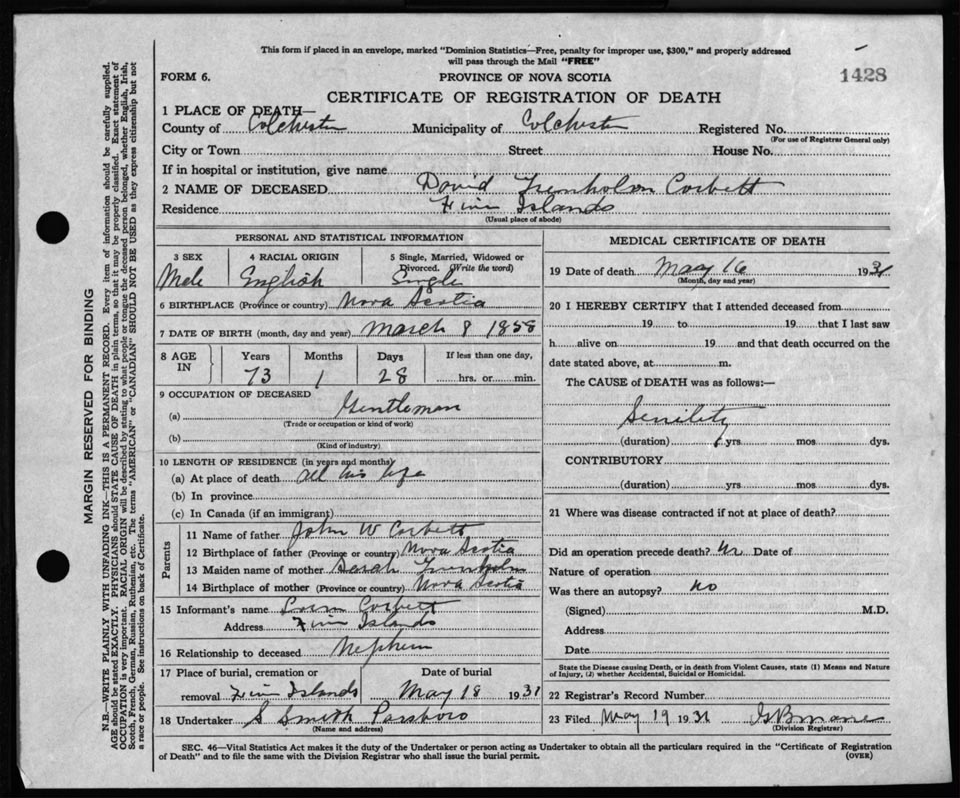 This form if placed in an envelope, marked "Dominion Statistics—Free, penalty for improper use, $300," and properly addressed
will pass through the Mail "FREE"
FORM 6.
PROVINCE OF NOVA SCOTIA
1428
CERTIFICATE OF REGISTRATION OF DEATH
1 PLACE OF DEATH—
County of Colchester Municipality of Colchester Registered No.
(For use of Registrar General only)
City or Town Street House No.
If in hospital or institution, give name
2 NAME OF DECEASED David Trenholm Corbett
Residence Five Islands
(Usual place of abode)
PERSONAL AND STATISTICAL INFORMATION
3 SEX 4 RACIAL ORIGIN 5 Single, Married, Widowed or
Divorced. (Write the word)
Male English Single
6 BIRTHPLACE (Province or country) Nova Scotia
7 DATE OF BIRTH (month, day and year) March 8 1858
8 AGE IN Years Months Days If less than one day,
73 1 28 hrs. or min.
9 OCCUPATION OF DECEASED
(a) Gentleman
(Trade or occupation or kind of work)
(b)
(Kind of industry)
10 LENGTH OF RESIDENCE (in years and months)
(a) At place of death all his life
(b) In province
(c) In Canada (if an immigrant)
Parents
11 Name of father John W Corbett
12 Birthplace of father (Province or country) Nova Scotia
13 Maiden name of mother Sarah Trenholm
14 Birthplace of mother (Province or country) Nova Scotia
15 Informant's name Corbett
Address Five Islands
16 Relationship to deceased Nephew
17 Place of burial, cremation or Date of burial
removal Five Islands May 18 1931
18 Undertaker S Smith Parrsboro
(Name and address)
MEDICAL CERTIFICATE OF DEATH
19 Date of death May 16 1931
(Month, day and year)
20 I HEREBY CERTIFY that I attended deceased from
19 to 19 that I last saw
h alive on 19 and that death occurred on the
date stated above, at m.
The CAUSE of DEATH was as follows:—
Senility
(duration) yrs mos dys.
CONTRIBUTORY
(duration) yrs mos dys.
21 Where was disease contracted if not at place of death?
Did an operation precede death? No Date of
Nature of operation
Was there an autopsy? no
(Signed) M.D.
Address
Date
State the Disease causing Death, or in death from Violent Causes, state (1) Means and Nature
of Injury, (2) whether Accidental, Suicidal or Homicidal.
22 Registrar's Record Number
23 Filed May 19 1931
(Division Registrar)
SEC. 46—Vital Statistics Act makes it the duty of the Undertaker or person acting as Undertaker to obtain all the particulars required in the "Certificate of Registration
of Death" and to file the same with the Division Registrar who shall issue the burial permit.
(OVER)
MARGIN RESERVED FOR BINDING
N.B.—WRITE PLAINLY WITH UNFADING INK—THIS IS A PERMANENT RECORD. Every item of information should be carefully supplied.
AGE should be stated EXACTLY. PHYSICIANS should STATE CAUSE OF DEATH in plain terms, so that it may be properly classified. Exact statement of
OCCUPATION is very important. RACIAL ORIGIN will be described by stating to what people or tongue the deceased person belonged, whether English, Irish,
Scotch, French, German, Russian, Ruthenian, etc. The terms "AMERICAN" or "CANADIAN" SHOULD NOT BE USED as they express citizenship but not
a race or people. See instructions on back of Certificate.